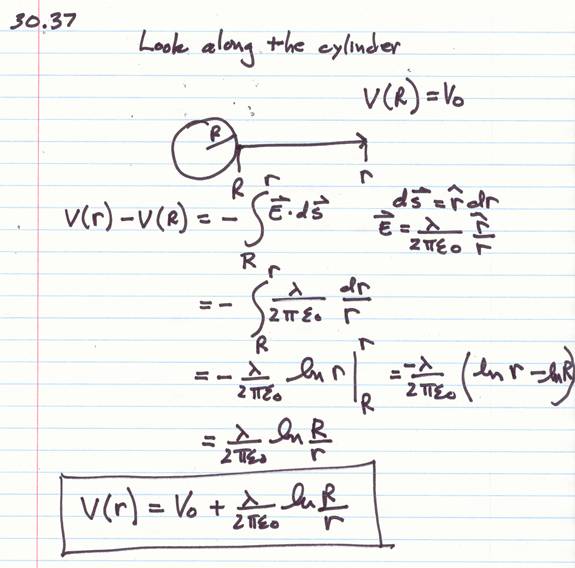 30.37
Look along the cylinder
V(R) = V₀
R
R r
V(r) - V(R) = - ∫_R^r E⃗·ds⃗
ds⃗ = r̂ dr
E⃗ = λ/2πε₀ r̂/r
= - ∫_R^r λ/2πε₀ dr/r
= - λ/2πε₀ ln r |_R^r = -λ/2πε₀ (ln r - ln R)
= λ/2πε₀ ln R/r
V(r) = V₀ + λ/2πε₀ ln R/r